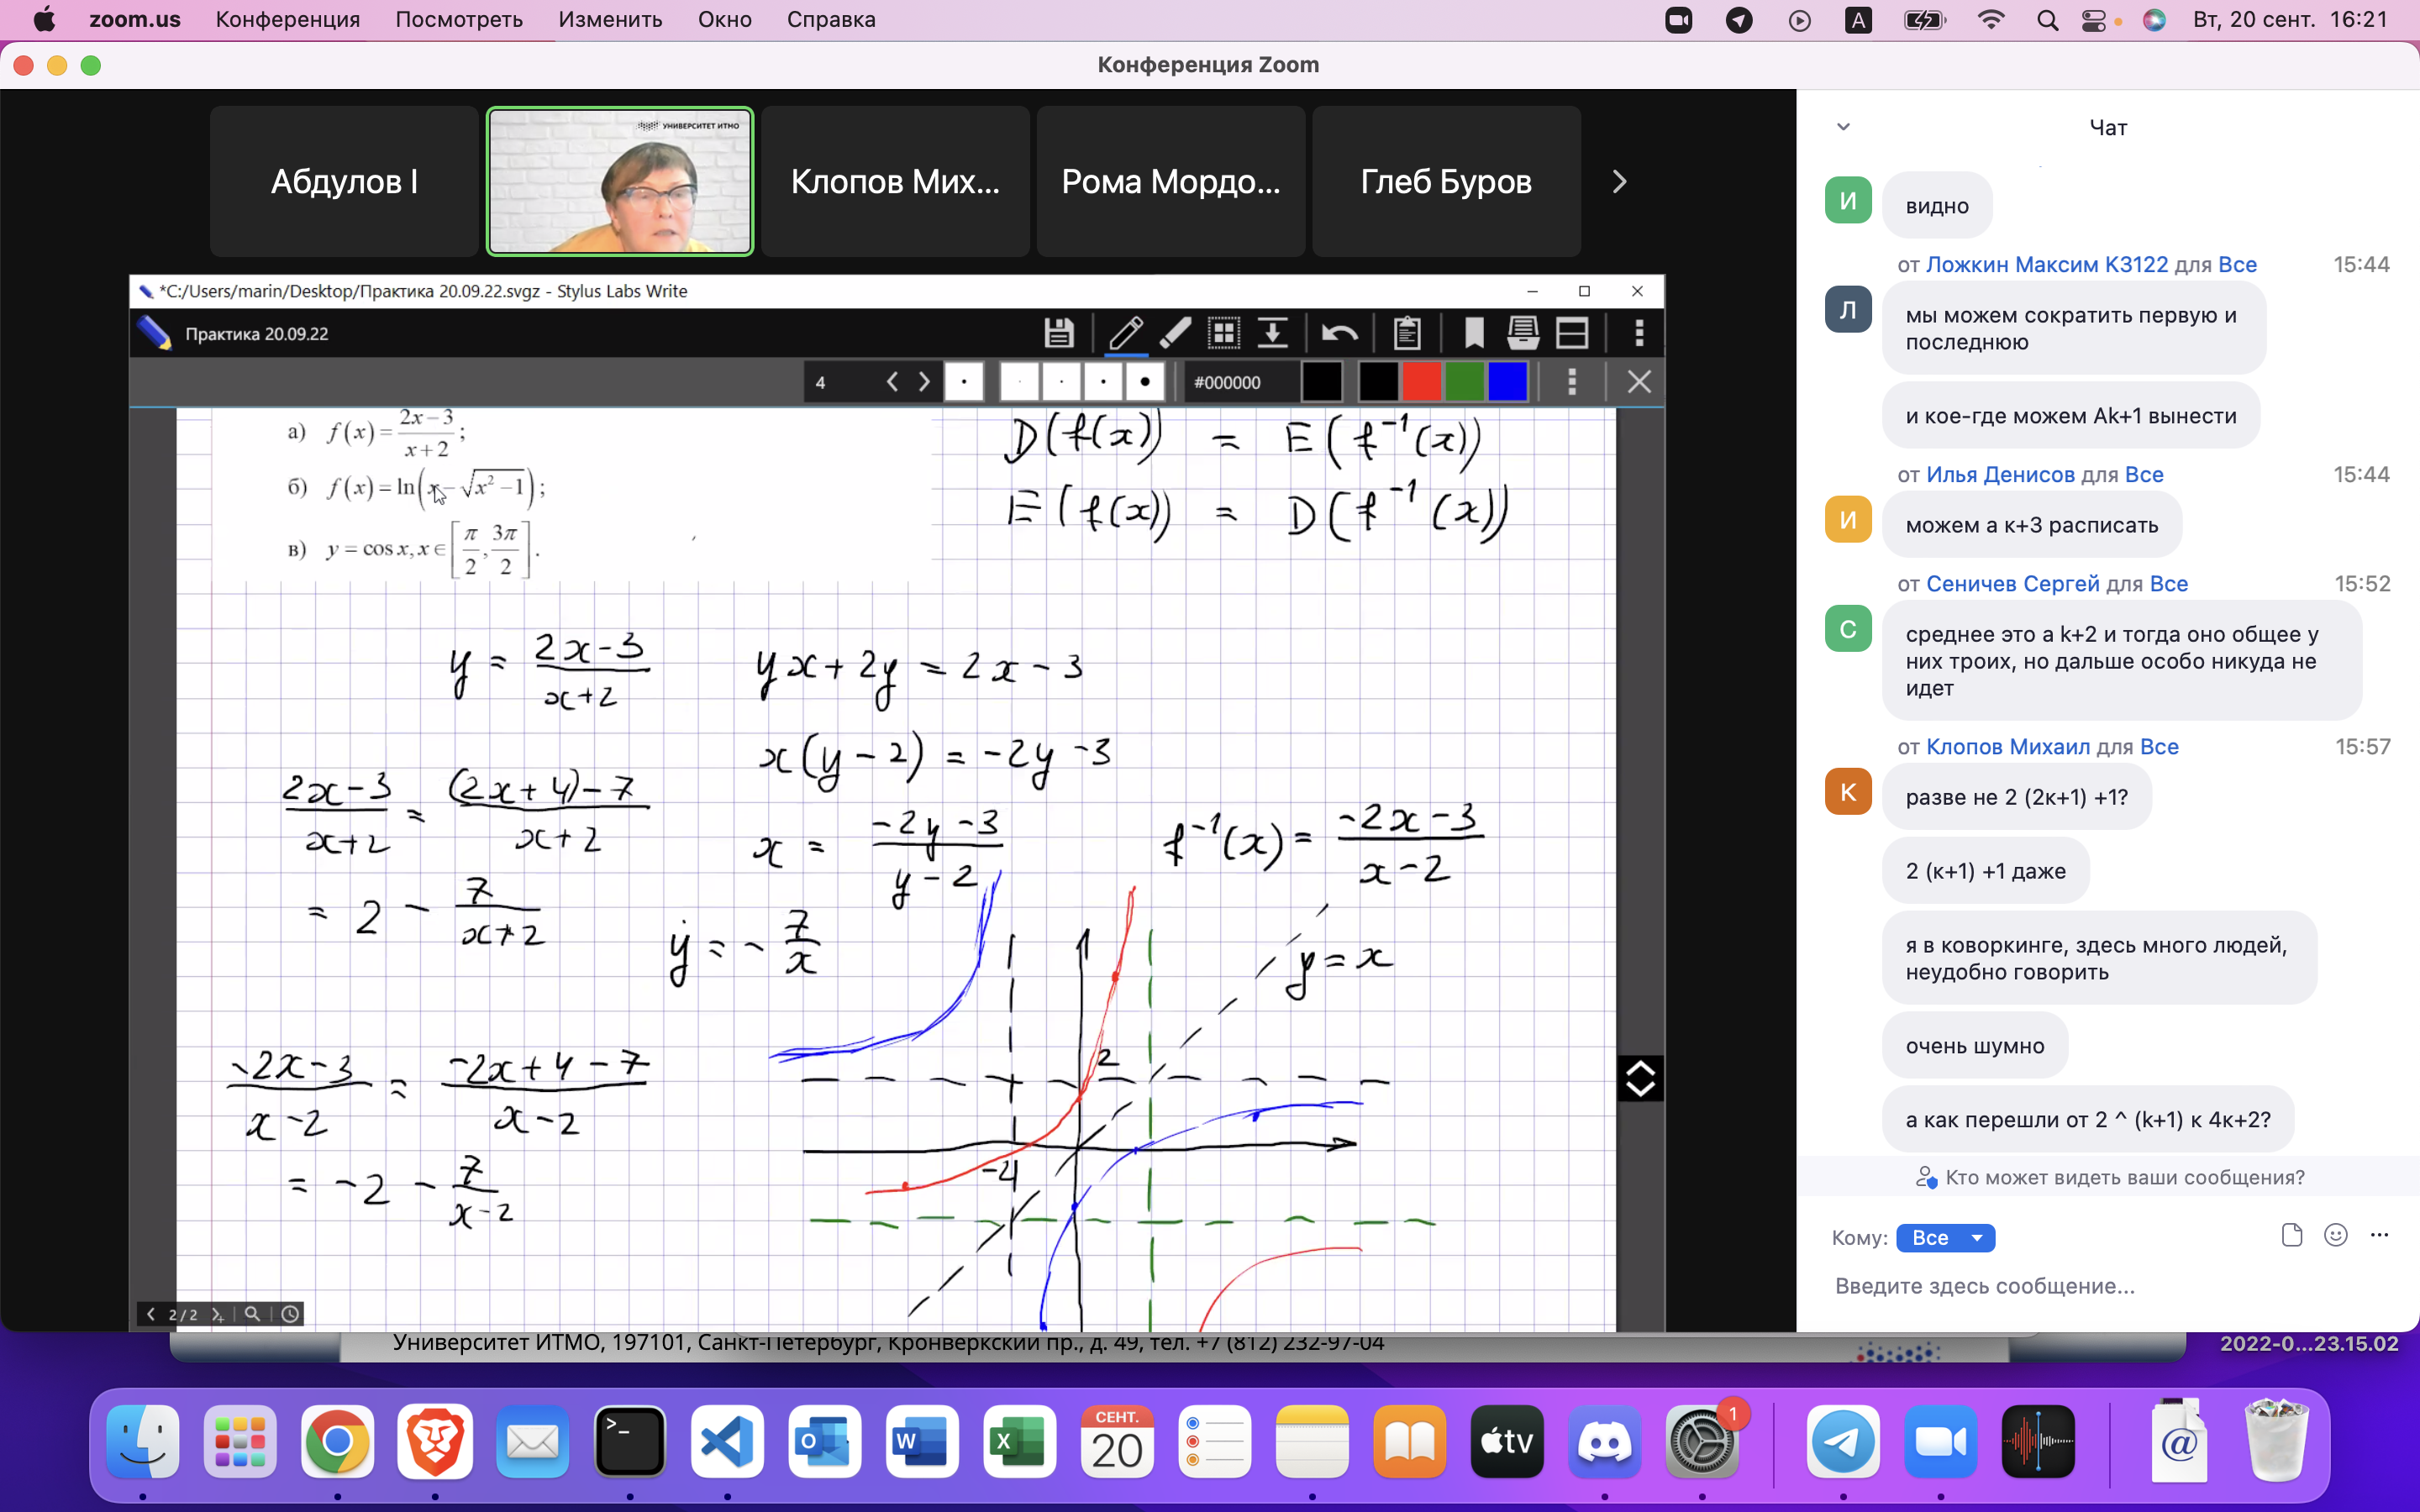 zoom.us Конференция Посмотреть Изменить Окно Справка A Вт, 20 сент. 16:21
Конференция Zoom
Абдулов I
УНИВЕРСИТЕТ ИТМО
Клопов Мих...
Рома Мордо...
Глеб Буров
*C:/Users/marin/Desktop/Практика 20.09.22.svgz - Stylus Labs Write
Практика 20.09.22
4 #000000
а) f(x) = (2x−3)/(x+2);
б) f(x) = ln(x−√(x²−1));
в) y = cos x, x ∈ [π/2, 3π/2].
D(f(x)) = E(f⁻¹(x))
E(f(x)) = D(f⁻¹(x))
y = (2x−3)/(x+2)
yx+2y = 2x−3
x(y−2) = −2y−3
(2x−3)/(x+2) = ((2x+4)−7)/(x+2)
= 2 − 7/(x+2)
x = (−2y−3)/(y−2)
f⁻¹(x) = (−2x−3)/(x−2)
y = −7/x
y = x
2
(−2x−3)/(x−2) = (−2x+4−7)/(x−2)
= −2 − 7/(x−2)
2/2
Чат
И
видно
от Ложкин Максим К3122 для Все 15:44
Л
мы можем сократить первую и
последнюю
и кое-где можем Ak+1 вынести
от Илья Денисов для Все 15:44
И
можем а к+3 расписать
от Сеничев Сергей для Все 15:52
С
среднее это а k+2 и тогда оно общее у
них троих, но дальше особо никуда не
идет
от Клопов Михаил для Все 15:57
К
разве не 2 (2к+1) +1?
2 (к+1) +1 даже
я в коворкинге, здесь много людей,
неудобно говорить
очень шумно
а как перешли от 2 ^ (k+1) к 4к+2?
Кто может видеть ваши сообщения?
Кому: Все
Введите здесь сообщение...
Университет ИТМО, 197101, Санкт-Петербург, Кронверкский пр., д. 49, тел. +7 (812) 232-97-04
2022-0...23.15.02
>_
O
W
X
СЕНТ.
20
tv
1
@